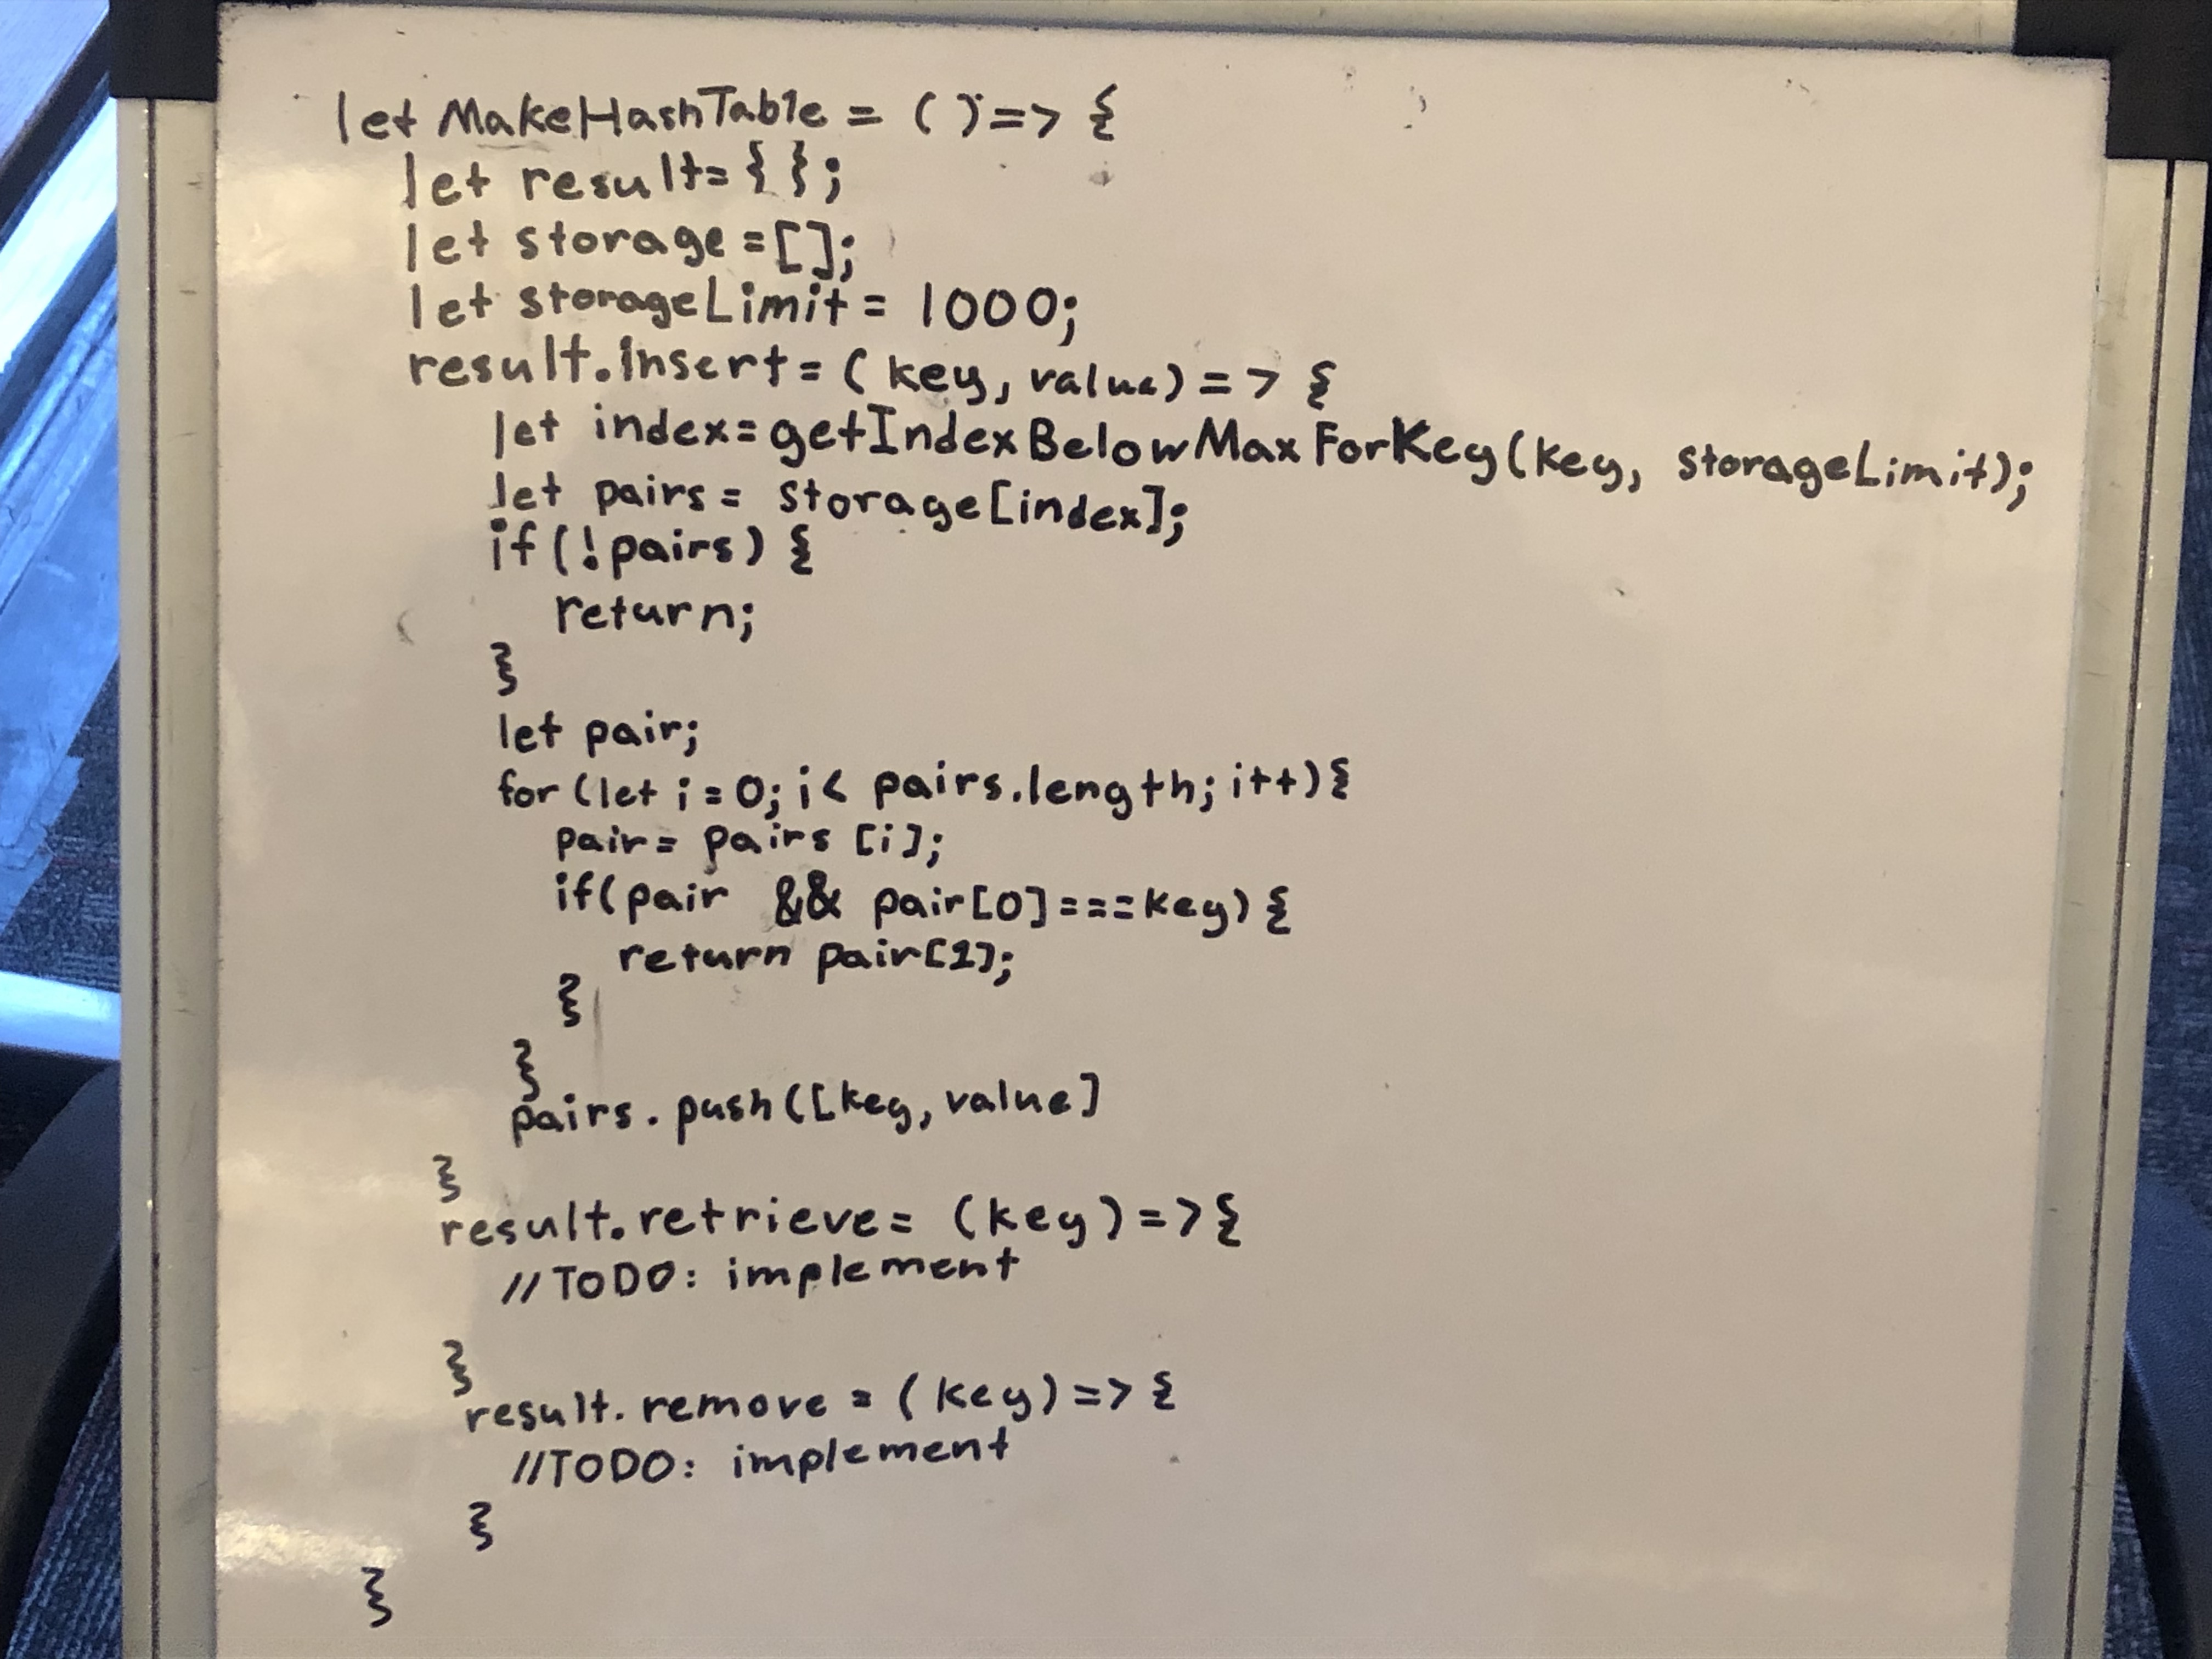 let MakeHashTable = () => {
let result={};
let storage=[];
let storageLimit = 1000;
result.insert=(key, value) => {
let index=getIndexBelowMaxForKey(key, storageLimit);
let pairs= storage[index];
if(!pairs) {
return;
}
let pair;
for (let i=0; i< pairs.length; i++){
pair= pairs [i];
if(pair && pair[0]===key) {
return pair[1];
{
}
pairs.push([key, value]
}
result.retrieve= (key)=>{
//TODO: implement
}
result.remove = (key)=> {
//TODO: implement
}
}